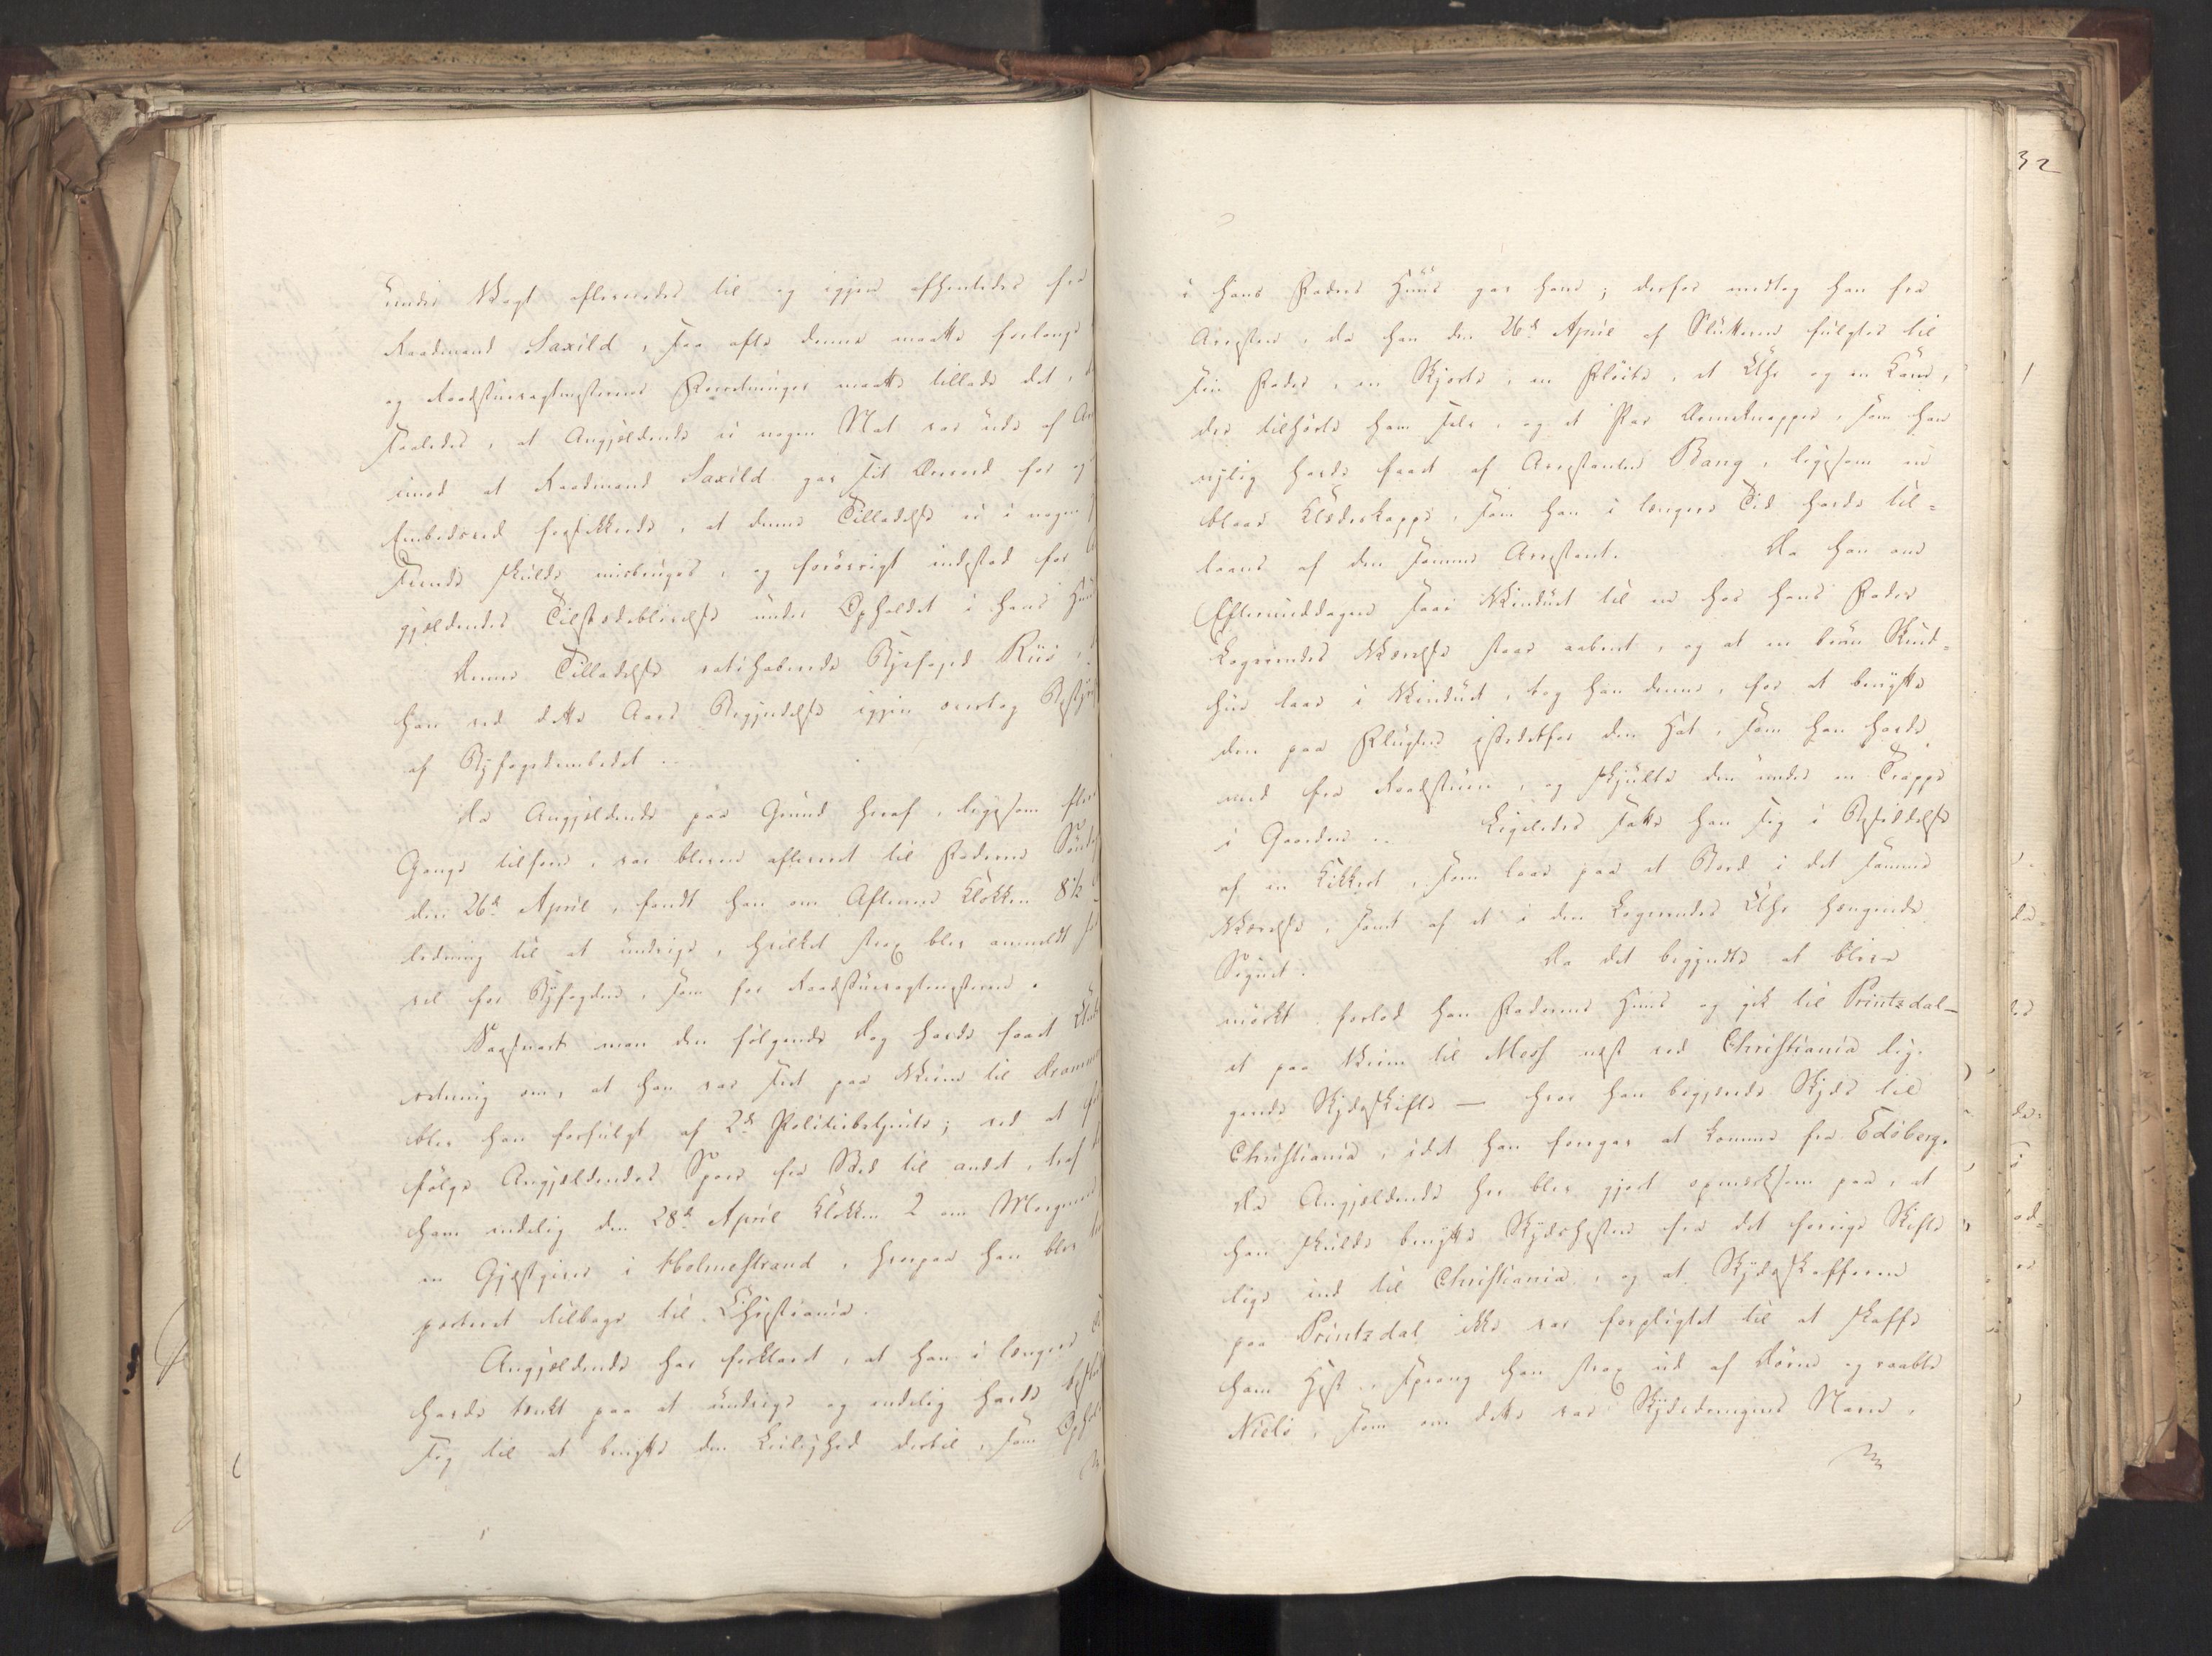 under Vagt afleveredes til og igjen afhentedes fra
Raadmand Saxild, saa ofte denne maatte forlange
og Raadstuevagtmesterens Forretninger maatte tillade det,
saaledes, at Angjældende ei nogen Nat var ude af
imod at Raadmand Saxild gav sit Ansvar for og
Embedseed forsikkrede, at denne Tilladelse ei i nogen
skulde misbruges, og forövrigt indestod for
gjældendes Tilstedeblivelse under Opholdet i hans
Denne Tilladelse ratihaberede Byefoged Riis,
han ved dette Aars Begyndelse igjen overtog
af Byfogedembedet.
Da Angjældende paa Grund heraf, ligesom flere
Gange tilforn, var bleven afleveret til Faderen
den 26de April, fandt han om Aftenen Klokken 8½
ledning til at undvige, hvilket strax blev anmeldt
vel for Byfogden, som for Raadstuevagtmesteren.
Saasnart man den fölgende Dag havde faaet
retning om, at han var seet paa Veien til
blev han forfulgt af 2de Politiebetjente; ved at
fölge Angjældendes Spor fra Sted til andet, traf
ham endelig den 28de April Klokken 2 om Morgenen
en Gjæstgiver i Holmestrand, hvorpaa han blev
porteret tilbage til Christiania.
Angjældende har forklaret, at han i længere
havde tænkt paa at undvige og endelig havde
sig til at benytte den Leilighed dertil, som
32
i hans Faders Huus gav ham; derfor medtog han fra
Arresten, da han den 26de April af Slutteren fulgtes til
sin Fader, en Skjorte, en Flöite, et Uhr og en
der tilhörte ham selv, og et Par Ærmeknapper, som han
nylig havde faaet af Arrestanten Bang, ligesom en
blaae Klædeskappe, som han i længere Tid havde til-
laans af den samme Arrestant. Da han om
Eftermiddagen saae Vinduet til en hos hans Fader
Logerendes Værelse staae aabent, og at en bruun Skind-
hue laae i Vinduet, tog han denne, for at benytte
den paa Flugten istedetfor den Hat, som han havde
med fra Raadstuen, og skjulte den under en Trappe
i Gaarden. Ligeledes satte han sig i Besiddelse
af en Kikkert, som laae paa et Bord i det samme
Værelse, samt af et i den Logerendes Uhr hængende
Signet. Da det begyndte at blive
mörkt forlod han Faderens Huus og gik til Printzdal —
et paa Veien til Moss næst ved Christiania lig-
gende Skydsskifte — hvor han begjerede Skyds til
Christiania, idet han foregav at komme fra Edsberg.
Da Angjældende her blev gjort opmærksom paa, at
han skulde benytte Skydshesten fra det forrige Skifte
lige ind til Christiania, og at Skydsskafferen
paa Printzdal ikke var forpligtet til at skaffe
ham Hest, sprang han strax ud af Dören og raabte
Niels, som om dette var Skydsdrengens Navn.